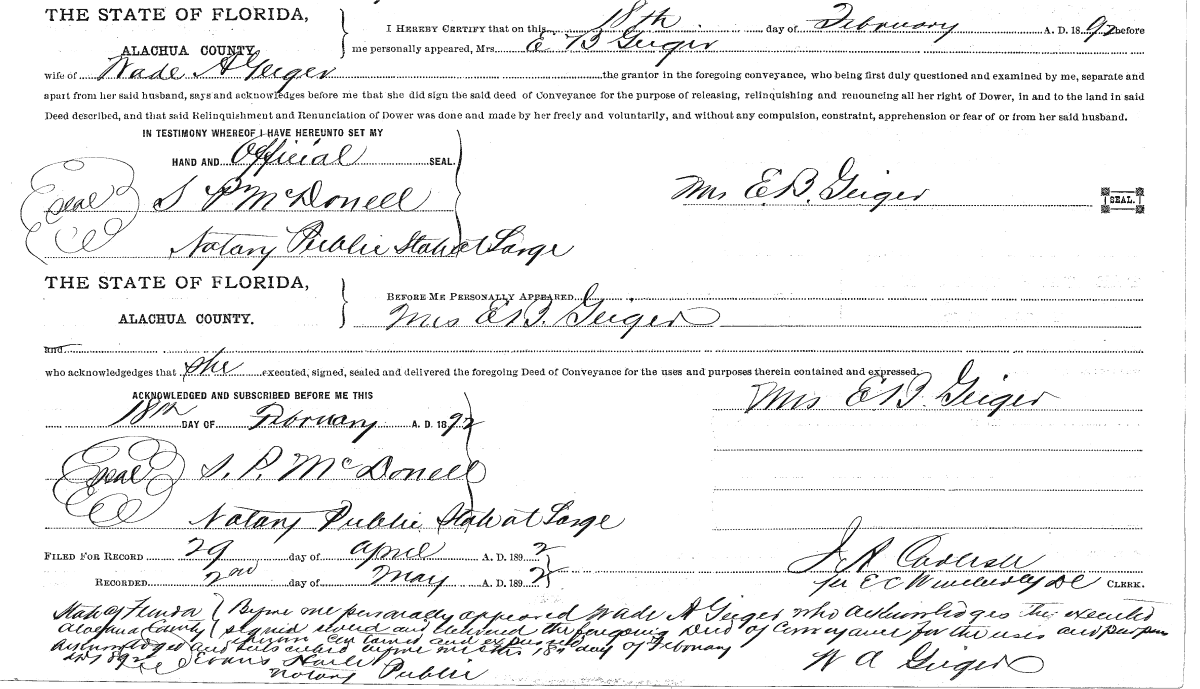 THE STATE OF FLORIDA,
ALACHUA COUNTY.
I HEREBY CERTIFY that on this 18th day of February A. D. 1892 before
me personally appeared, Mrs. E B Geiger
wife of Wade A Geiger the grantor in the foregoing conveyance, who being first duly questioned and examined by me, separate and
apart from her said husband, says and acknowledges before me that she did sign the said deed of Conveyance for the purpose of releasing, relinquishing and renouncing all her right of Dower, in and to the land in said
Deed described, and that said Relinquishment and Renunciation of Dower was done and made by her freely and voluntarily, and without any compulsion, constraint, apprehension or fear of or from her said husband.
IN TESTIMONY WHEREOF I HAVE HEREUNTO SET MY
HAND AND Official SEAL.
Seal S P McDonell
Notary Public State at Large
Mrs E. B. Geiger SEAL.
THE STATE OF FLORIDA,
ALACHUA COUNTY.
BEFORE ME PERSONALLY APPEARED
Mrs E B. Geiger
and
who acknowledgedges that she executed, signed, sealed and delivered the foregoing Deed of Conveyance for the uses and purposes therein contained and expressed.
ACKNOWLEDGED AND SUBSCRIBED BEFORE ME THIS
18th DAY OF February A. D. 1892
Mrs E B. Geiger
Seal S. P. McDonell
Notary Public State at Large
FILED FOR RECORD 29 day of April A. D. 1892
RECORDED 2nd day of May A. D. 1892
J A Carlisle
per E C Wimberly DC CLERK.
State of Florida Before me personally appeared Wade A Geiger who acknowledges that executed
Alachua County signed sealed and delivered the foregoing Deed of Conveyance for the uses and purposes
therein contained and expressed
Acknowledged and subscribed before me this 18th day of February
AD 1892 Evans Haile
Notary Public
W A Geiger